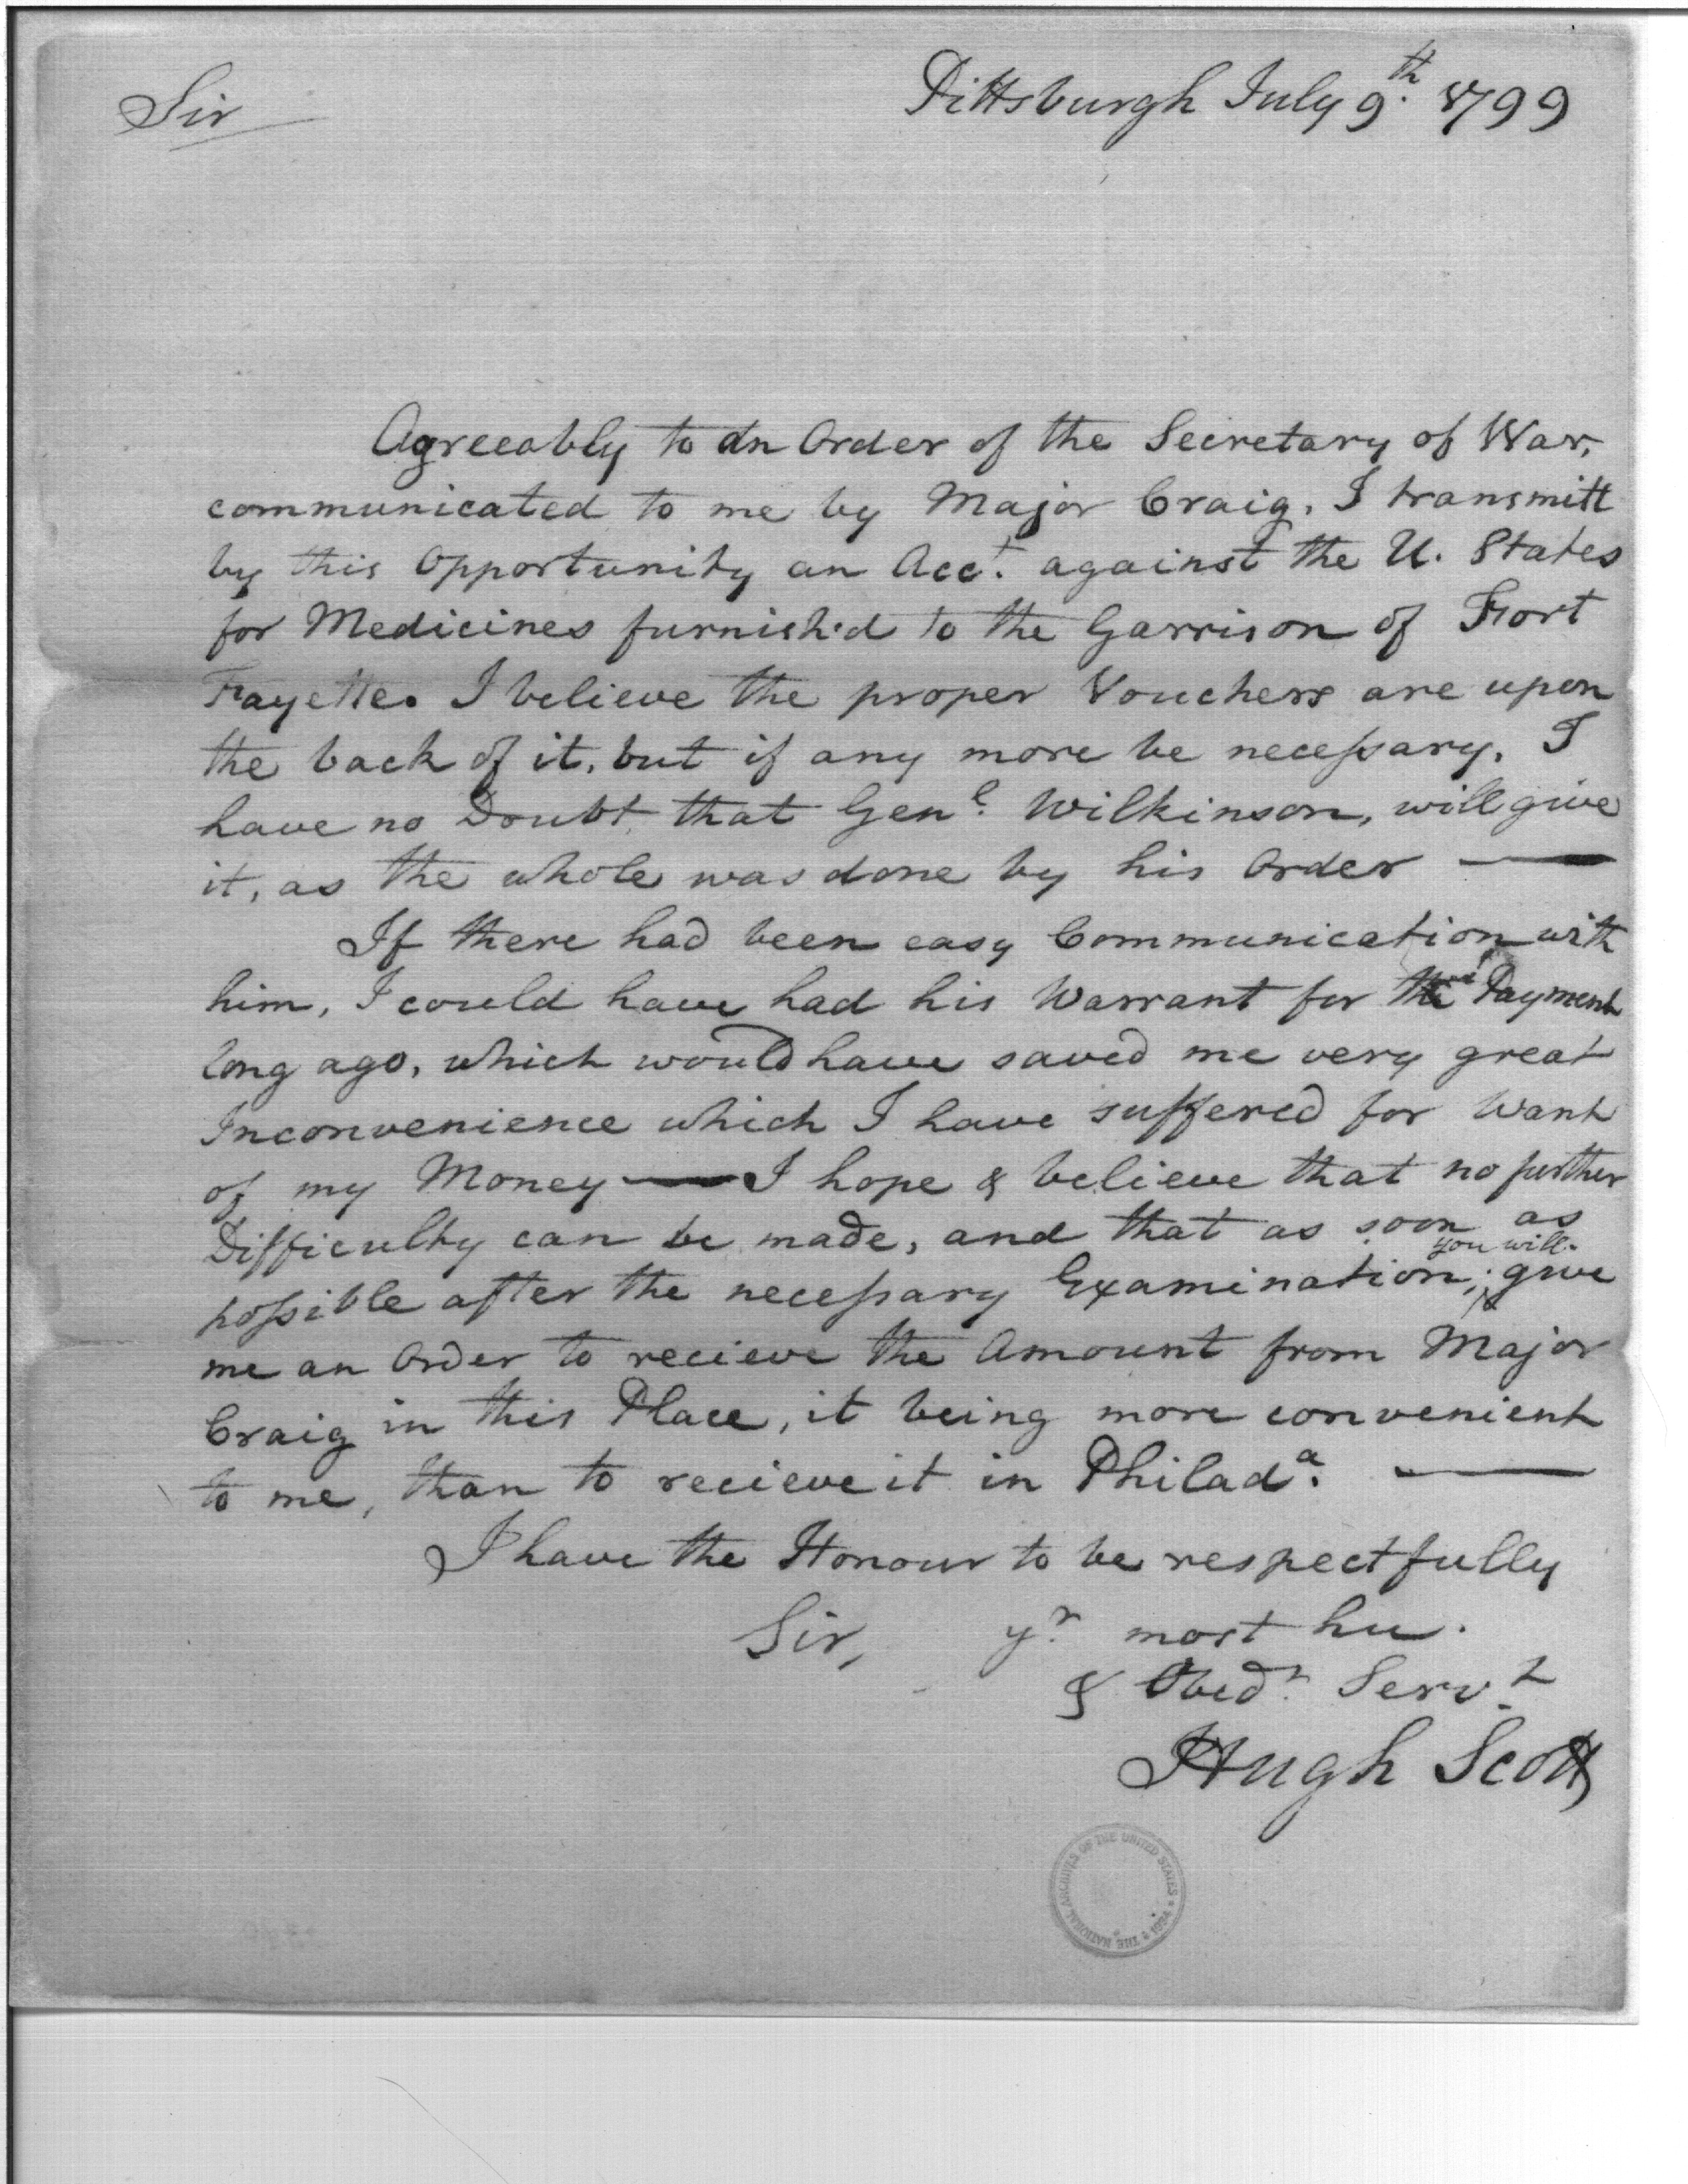 Sir
Pittsburgh July 9th. 1799
Agreeably to an Order of the Secretary of War,
communicated to me by Major Craig, I transmitt
by this Opportunity an Acct. against the U. States
for Medicines furnish'd to the Garrison of Fort
Fayette. I believe the proper Vouchers are upon
the back of it, but if any more be necessary, I
have no Doubt that Genl. Wilkinson, will give
it, as the whole was done by his Order —
If there had been easy Communication with
him, I could have had his Warrant for the Payment
long ago, which would have saved me very great
Inconvenience which I have suffered for Want
of my Money — I hope & believe that no further
Difficulty can be made, and that as soon as
possible after the necessary Examination, you will give
me an Order to recieve the Amount from Major
Craig in this Place, it being more convenient
to me, than to recieve it in Philada. —
I have the Honour to be respectfully
Sir, yr. most hu.
& Obedt. Servt.
Hugh Scott
THE NATIONAL ARCHIVES OF THE UNITED STATES 1934